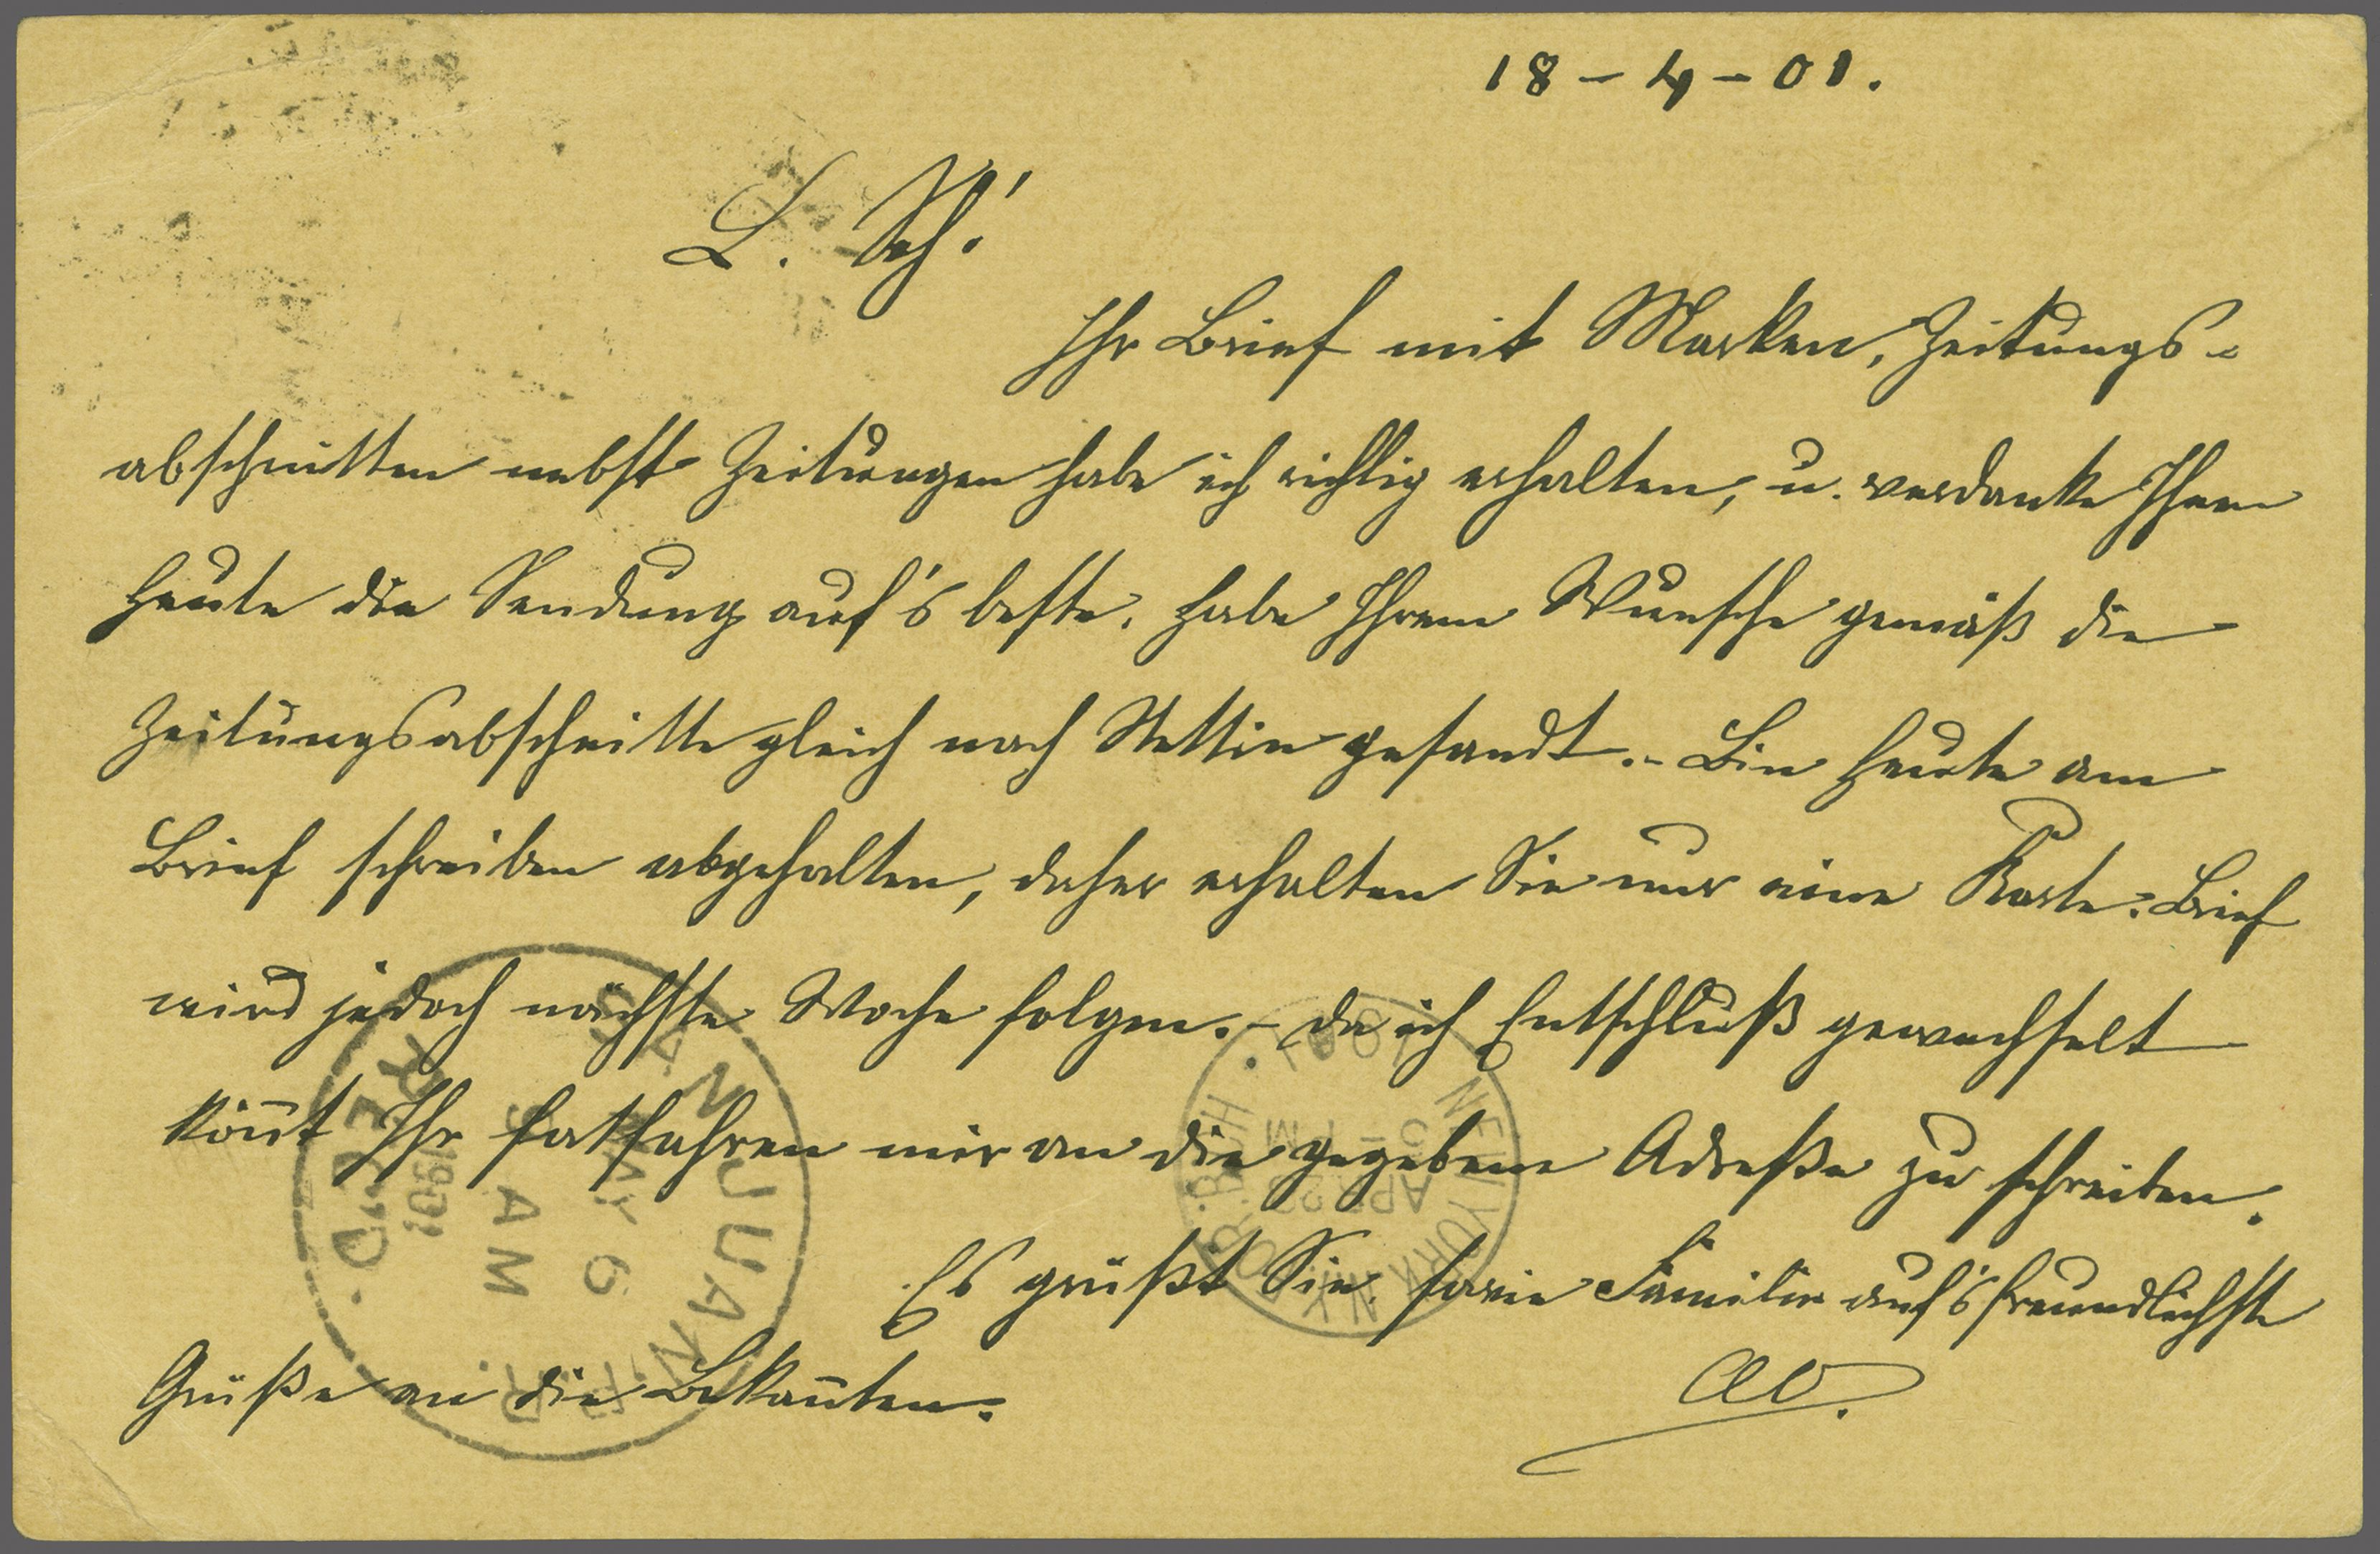 18 – 4 – 01.
L. Sch!
Ihr Brief mit Marken, Zeitungs-
abschnitten nebst Zeitungen habe ich richtig erhalten, u. verdanke Ihnen
heute die Sendung auf's beste. Habe Ihrem Wunsche gemäß die
Zeitungsabschnitte gleich nach Stettin gesandt. – Bin heute am
Brief schreiben abgehalten, daher erhalten Sie nur eine Karte. Brief
wird jedoch nächste Woche folgen. – Da ich Entschluß gewechselt
könt Ihr fortfahren mir an die gegebene Adreße zu schreiben.
Es grüßt Sie sowie Familie auf's freundlichste
Grüße an die Bekanten.
SAN JUAN P.R.
MAY 6
5 AM
1901
REC'D.
NEW YORK N.Y.
APR 29
PM
1901